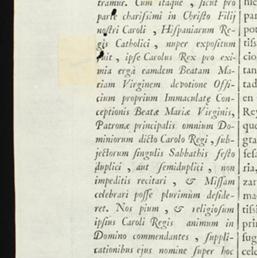 tramus. Cum itaque, sicut pro
parte charissimi in Christo Filij
nostri Caroli, Hispaniarum Re-
gis Catholici, nuper expositum
fuit, ipse Carolus Rex pro exi-
mia erga eamdem Beatam Ma-
riam Virginem devotione Offi-
cium proprium Immaculatæ Con-
ceptionis Beatæ Mariæ Virginis,
Patronæ principalis omnium Do-
miniorum dicto Carolo Regi, sub-
jectorum singulis Sabbathis festo
duplici, aut semiduplici, non
impeditis recitari, & Missam
celebrari posse plurimum deside-
ret. Nos pium, & religiosum
ipsius Caroli Regis animum in
Domino commendantes, suppli-
cationibus ejus nomine super hoc